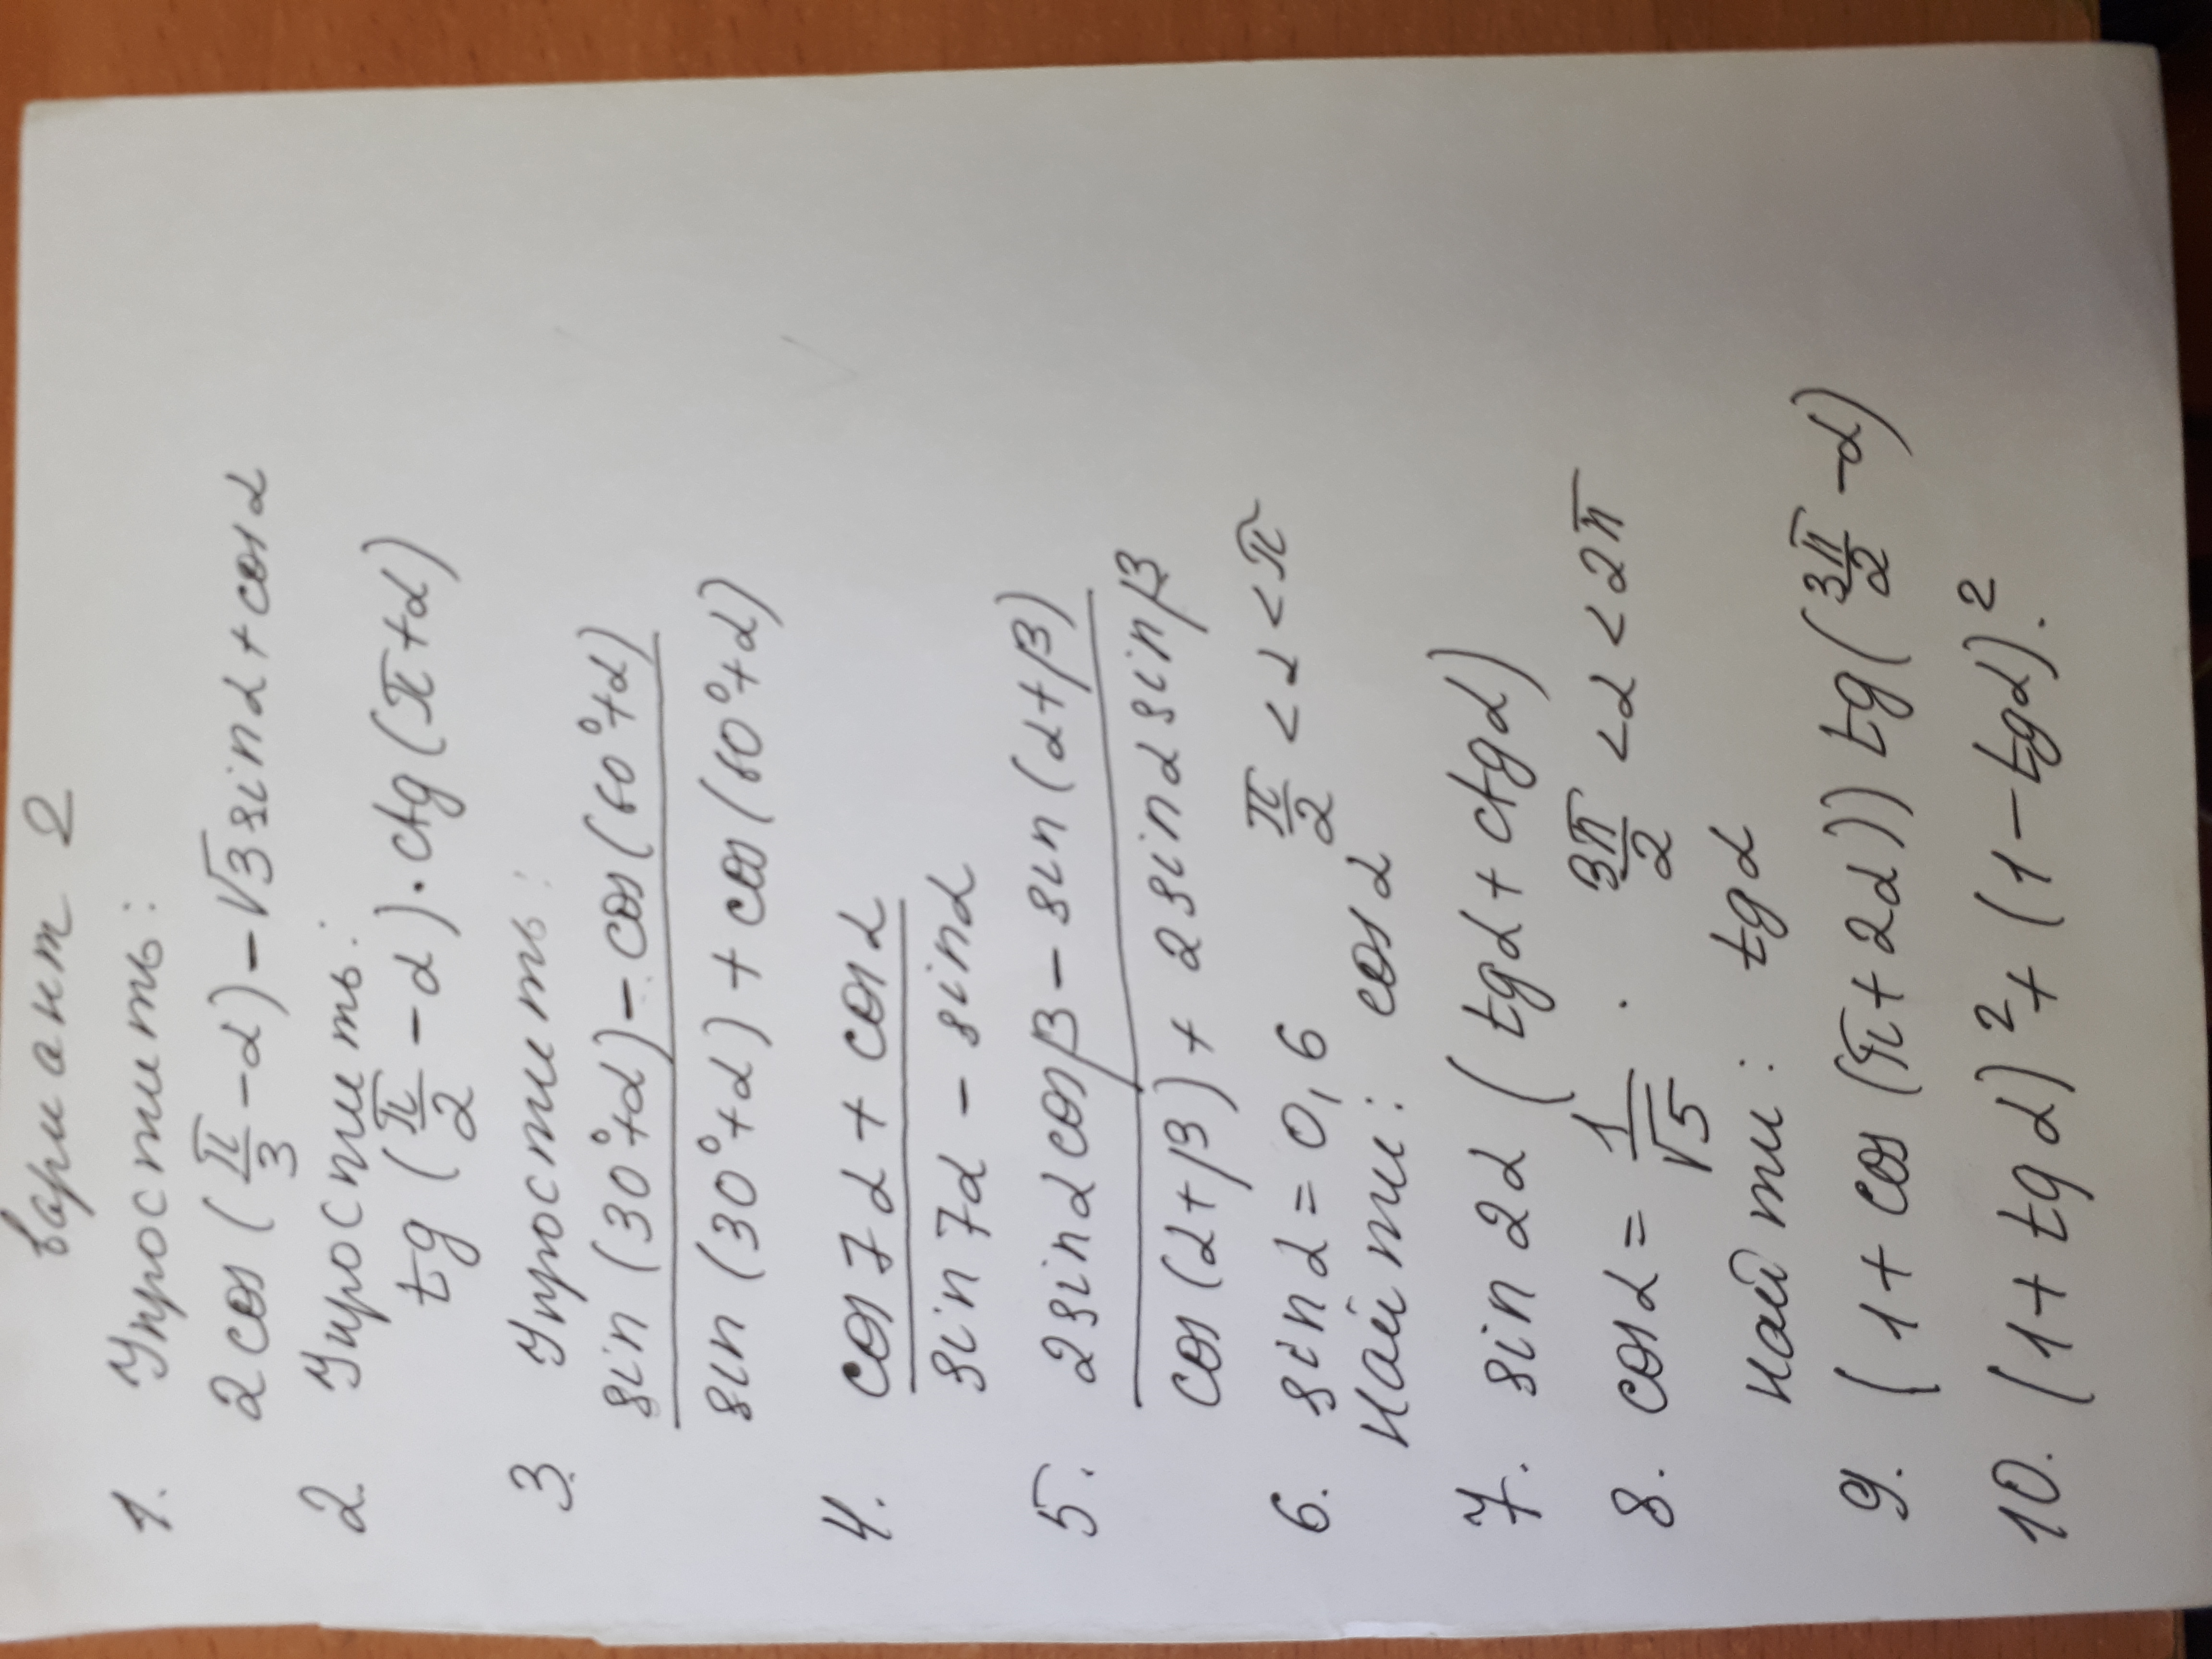 вариант 2
1. Упростить:
2cos(π/3 - α) - √3 sinα + cosα
2. Упростить:
tg(π/2 - α) · ctg(π + α)
3. Упростить:
sin(30° + α) - cos(60° + α)
sin(30° + α) + cos(60° + α)
4. cos7α + cosα
sin7α - sinα
5. 2sinαcosβ - sin(α + β)
cos(α + β) + 2sinαsinβ
6. sinα = 0,6 π/2 < α < π
Найти: cosα
7. sin2α (tgα + ctgα)
8. cosα = 1/√5 . 3π/2 < α < 2π
Найти: tgα
9. (1 + cos(π + 2α)) tg(3π/2 - α)
10. (1 + tgα)² + (1 - tgα)².